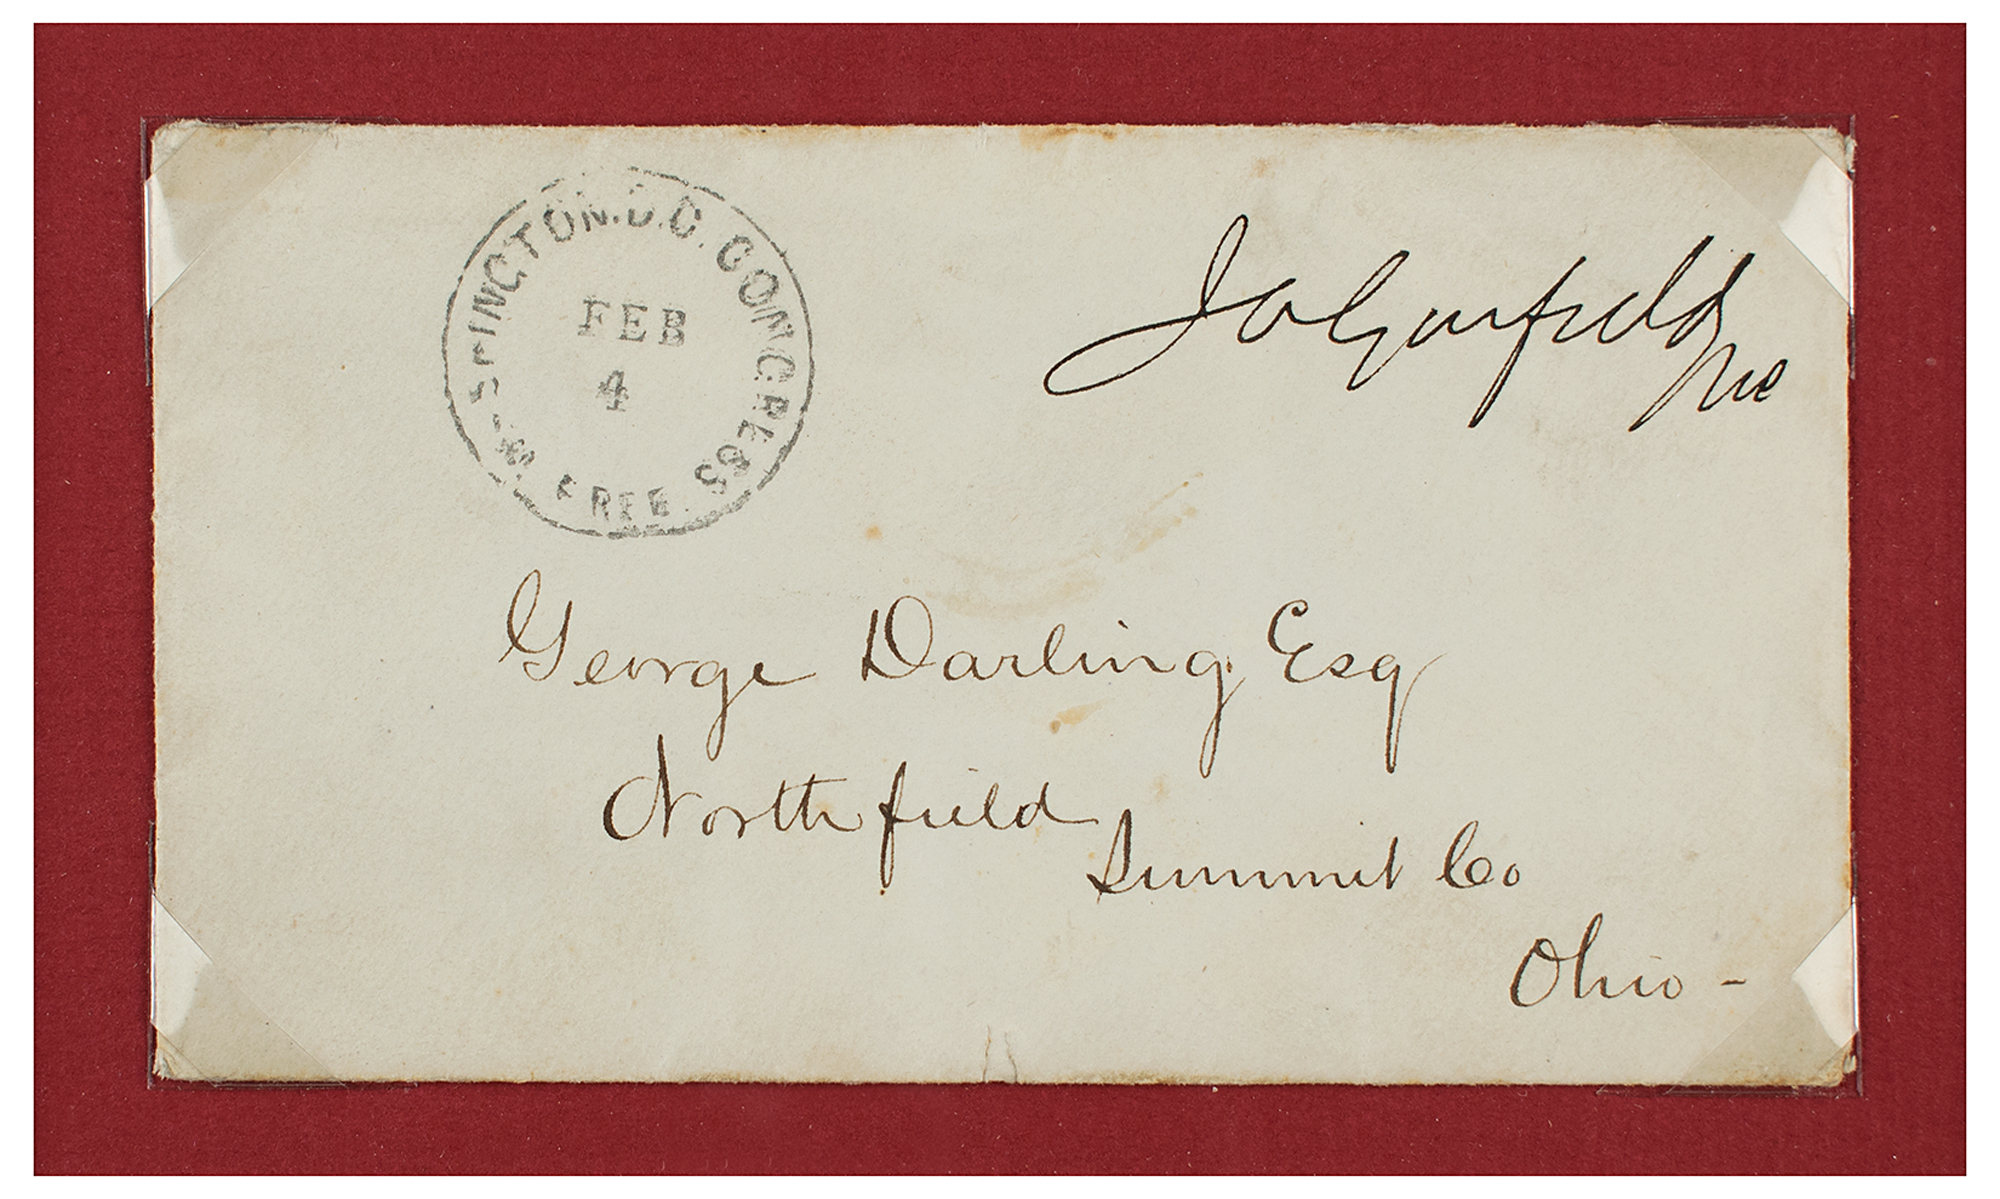 WASHINGTON. D.C. CONGRESS
FREE
FEB
4
JAGarfield
MC
George Darling Esq
Northfield
Summit Co
Ohio -